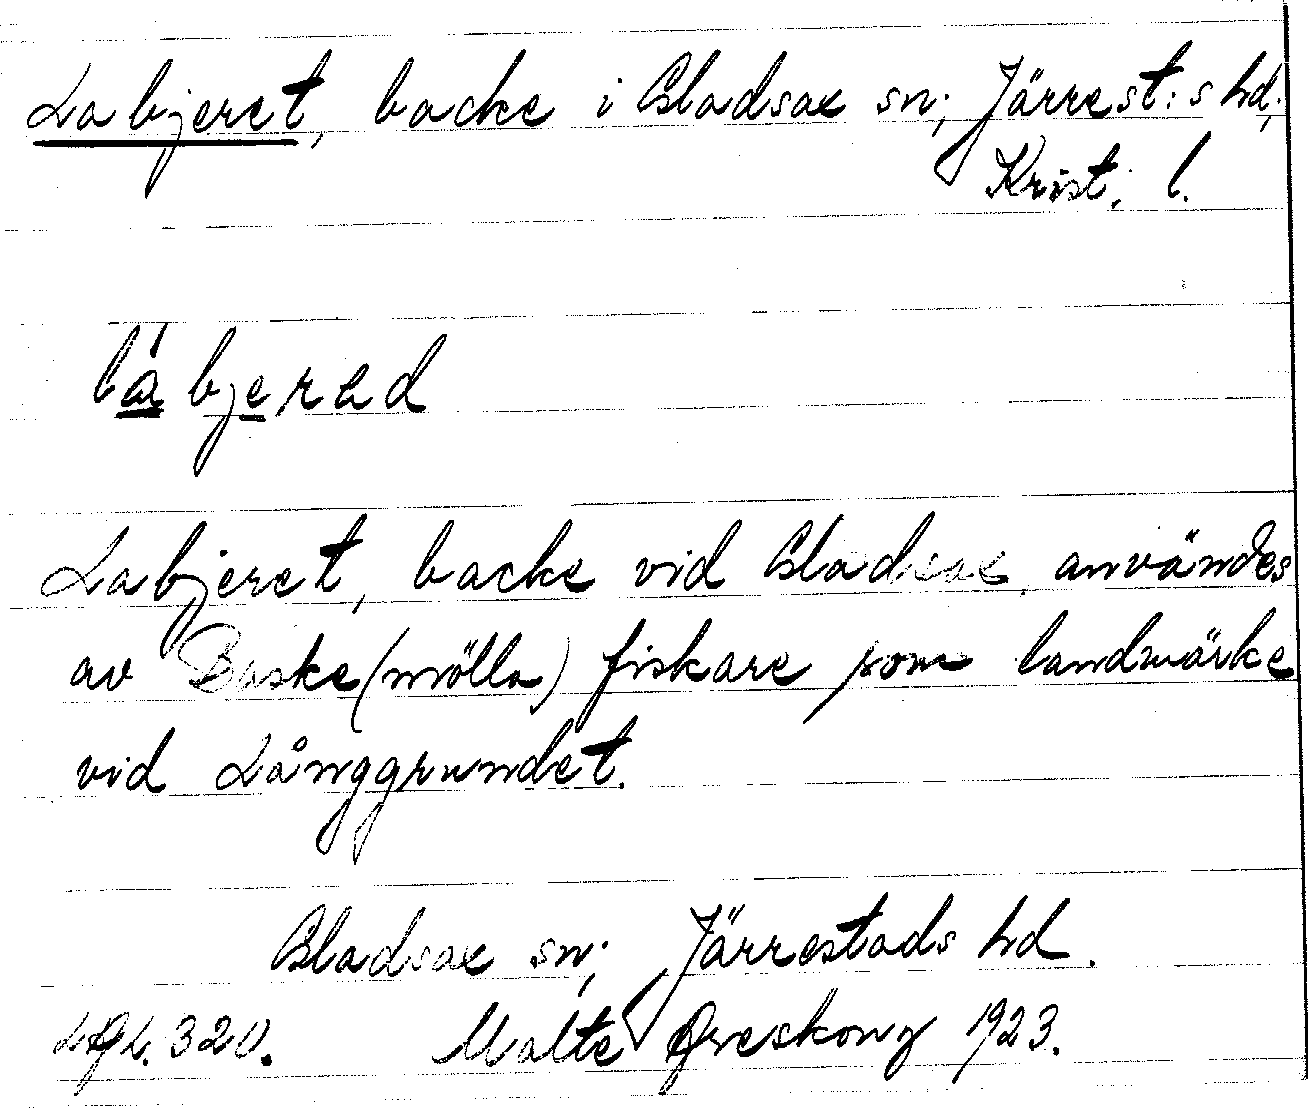 Labjeret, backe i Gladsax sn; Järrest:s hd;
Krist. l.
lábjerad
Labjeret, backe vid Gladsax, användes
av Baske(mölla) fiskare som landmärke
vid Långgrundet.
Gladsax sn; Järrestads hd.
320. Malte Areskoug 1923.